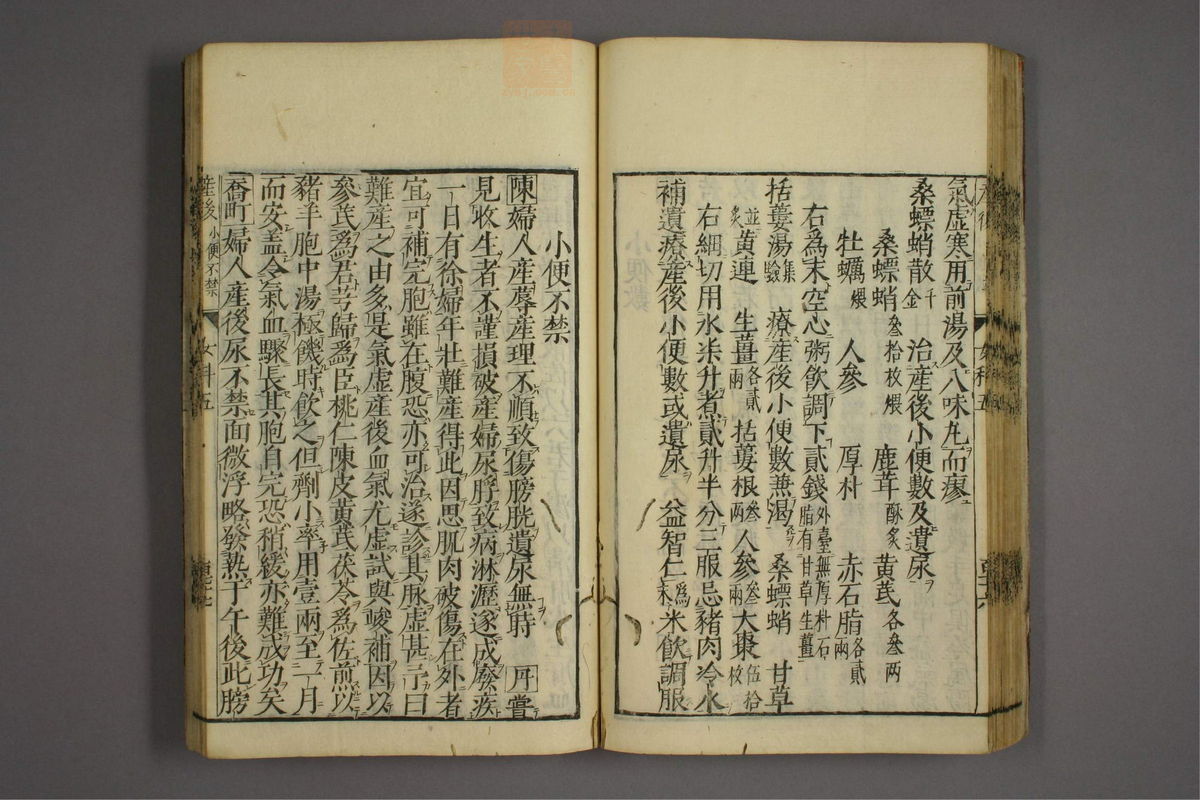 氣虛寒用前湯及八味丸而瘳
桑螵蛸散千金 治產後小便數及遺尿
桑螵蛸叄拾枚煨 鹿茸酥炙 黃芪各叄兩
牡蠣煨 人參 厚朴 赤石脂各貳兩
右為末空心粥飲調下貳錢外臺無厚朴石脂有甘草生薑
括蔞湯集驗 療產後小便數兼渴 桑螵蛸 甘草
並炙 黃連 生薑各貳兩 括蔞根叄兩 人參叄兩 大棗伍拾枚
右細切用水柒升煮貳升半分三服忌豬肉冷水
補遺療產後小便數或遺尿 益智仁為末 米飲調服
小便不禁
陳婦人產蓐產理不順致傷膀胱遺尿無時 丹嘗
見收生者不謹損破產婦尿脬致病淋瀝遂成廢疾
一日有徐婦年壯難產得此因思肌肉破傷在外者
宜可補完胞雖在腹恐亦可治遂診其脉虛甚予曰
難產之由多是氣虛產後血氣尤虛試與峻補因以
參芪為君芎歸為臣桃仁陳皮黃芪茯苓為佐煎以
豬羊胞中湯極饑時飲之但劑小率用壹兩至一月
而安盖令氣血驟長其胞自完恐稍緩亦難成功矣
喬町婦人產後尿不禁面微浮略發熱于午後此膀
產後 小便不禁
女科五